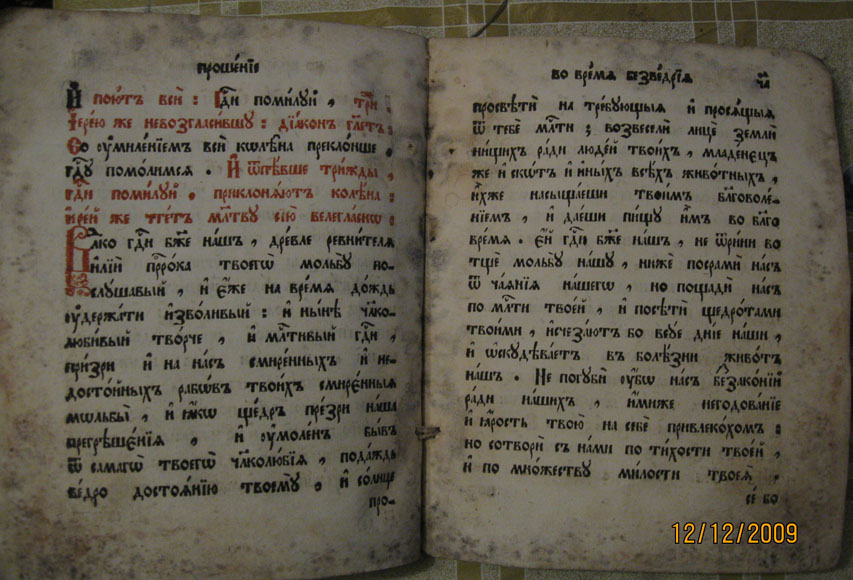 прошéнїе
И҆ пою́тъ всѝ: Гд҇и поми́луй, три́
І҆ере́ю же невозгласи́вшу: дїа́конъ гл҃етъ:
Со ᲂу҆миле́нїемъ всѝ колѣ́на прекло́нше,
гд҇у помо́лимсѧ. И҆ ѿпѣ́вше три́жды,
гд҇и поми́луй, приклонѧ́ютъ колѣ́на:
і҆ере́й же чте́тъ мл҃тву сїю̀ велегла́снѡ:
Влⷣко гд҇и бж҃е на́шъ, дре́вле ревни́телѧ
и҆лїѝ прⷪ҇ро́ка твоегѡ̀ мольбу̀ по-
слу́шавый, и҆ є҆́же на вре́мѧ до́ждь
ᲂу҆держа́ти и҆зво́ливый: и҆ ны́нѣ чл҃ко-
люби́вый тво́рче, и҆ мл҇тивый гд҇и,
при́зри и҆ на на́съ смире́нныхъ и҆ не-
досто́йныхъ рабѡ́въ твои́хъ смире́нныѧ
мѡльбы̀, и҆ ꙗ҆́кѡ ще́дръ пре́зри на́ша
прегрѣшє́нїѧ, и҆ ᲂу҆моле́нъ бы́въ
ѿ самагѡ̀ твоегѡ̀ чл҃колю́бїѧ, пода́ждь
ве́дро достоѧ́нїю твоемꙋ̀, и҆ со́лнце
про-
во вре́мѧ безве́дрїѧ
ч҃а
просвѣтѝ на тре́бующыѧ и҆ просѧ́щыѧ
ѿ тебє̀ мл҇ти; возвеселѝ лицѐ землѝ
ни́щихъ ра́ди люде́й твои́хъ, младе́нєцъ
же и҆ ско́тъ и҆ и҆ны́хъ всѣ́хъ живо́тныхъ,
и҆̀хже насыща́еши твои́мъ бл҃говоле́-
нїемъ, и҆ дае́ши пи́щу и҆̀мъ во бл҃го
вре́мѧ. Є҆́й гд҇и бж҃е на́шъ, не ѿри́ни во
тщѐ мольбу̀ на́шу, нижѐ посрамѝ на́съ
ѿ ча́ѧнїѧ на́шегѡ, но пощадѝ на́съ
по мл҇ти твое́й, и҆ посѣтѝ щедро́тами
твои́ми, и҆счеза́ютъ бо всуе дні́е на́ши,
и҆ ѡ҆скудѣва́етъ въ болѣ́зни живо́тъ
на́шъ. Не погубѝ ᲂу҆̀бѡ на́съ беззако́нїй
ра́ди на́шихъ, и҆́миже негодова́нїе
и҆ ꙗ҆́рость твою̀ на себѐ привлеко́хомъ:
но сотворѝ съ на́ми по ти́хости твое́й,
и҆ по мно́жеству ми́лости твоеѧ̀,
се́ бо
12/12/2009